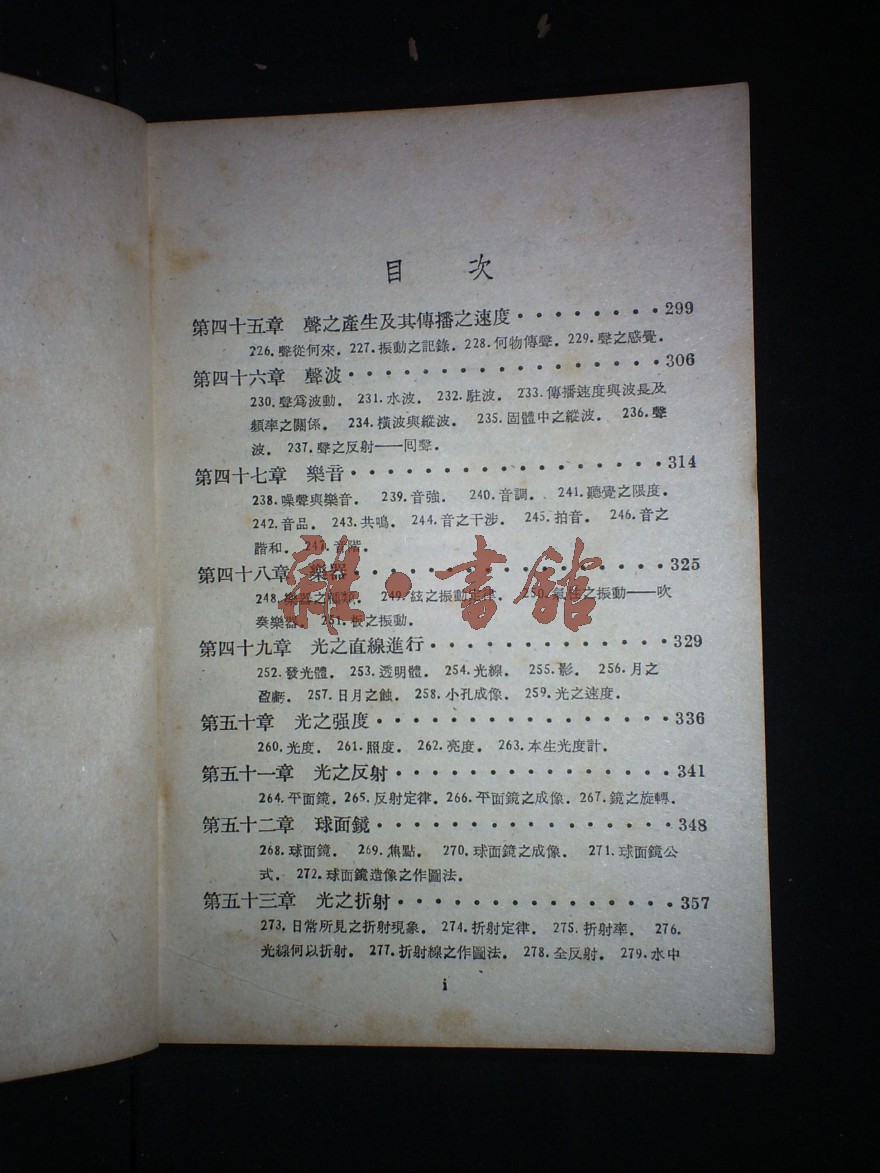 目 次
第四十五章 聲之產生及其傳播之速度········299
226.聲從何來. 227.振動之記錄. 228.何物傳聲. 229.聲之感覺.
第四十六章 聲波·················306
230.聲爲波動. 231.水波. 232.駐波. 233.傳播速度與波長及
頻率之關係. 234.橫波與縱波. 235.固體中之縱波. 236.聲
波. 237.聲之反射——回聲.
第四十七章 樂音·················314
238.噪聲與樂音. 239.音強. 240.音調. 241.聽覺之限度.
242.音品. 243.共鳴. 244.音之干涉. 245.拍音. 246.音之
諧和. 247.音階.
第四十八章 樂器·················325
248.樂器之種類. 249.絃之振動定律. 250.氣柱之振動——吹
奏樂器. 251.板之振動.
第四十九章 光之直線進行············329
252.發光體. 253.透明體. 254.光線. 255.影. 256.月之
盈虧. 257.日月之蝕. 258.小孔成像. 259.光之速度.
第五十章 光之强度················336
260.光度. 261.照度. 262.亮度. 263.本生光度計.
第五十一章 光之反射···············341
264.平面鏡. 265.反射定律. 266.平面鏡之成像. 267.鏡之旋轉.
第五十二章 球面鏡················348
268.球面鏡. 269.焦點. 270.球面鏡之成像. 271.球面鏡公
式. 272.球面鏡造像之作圖法.
第五十三章 光之折射···············357
273.日常所見之折射現象. 274.折射定律. 275.折射率. 276.
光線何以折射. 277.折射線之作圖法. 278.全反射. 279.水中
i
雜·書館